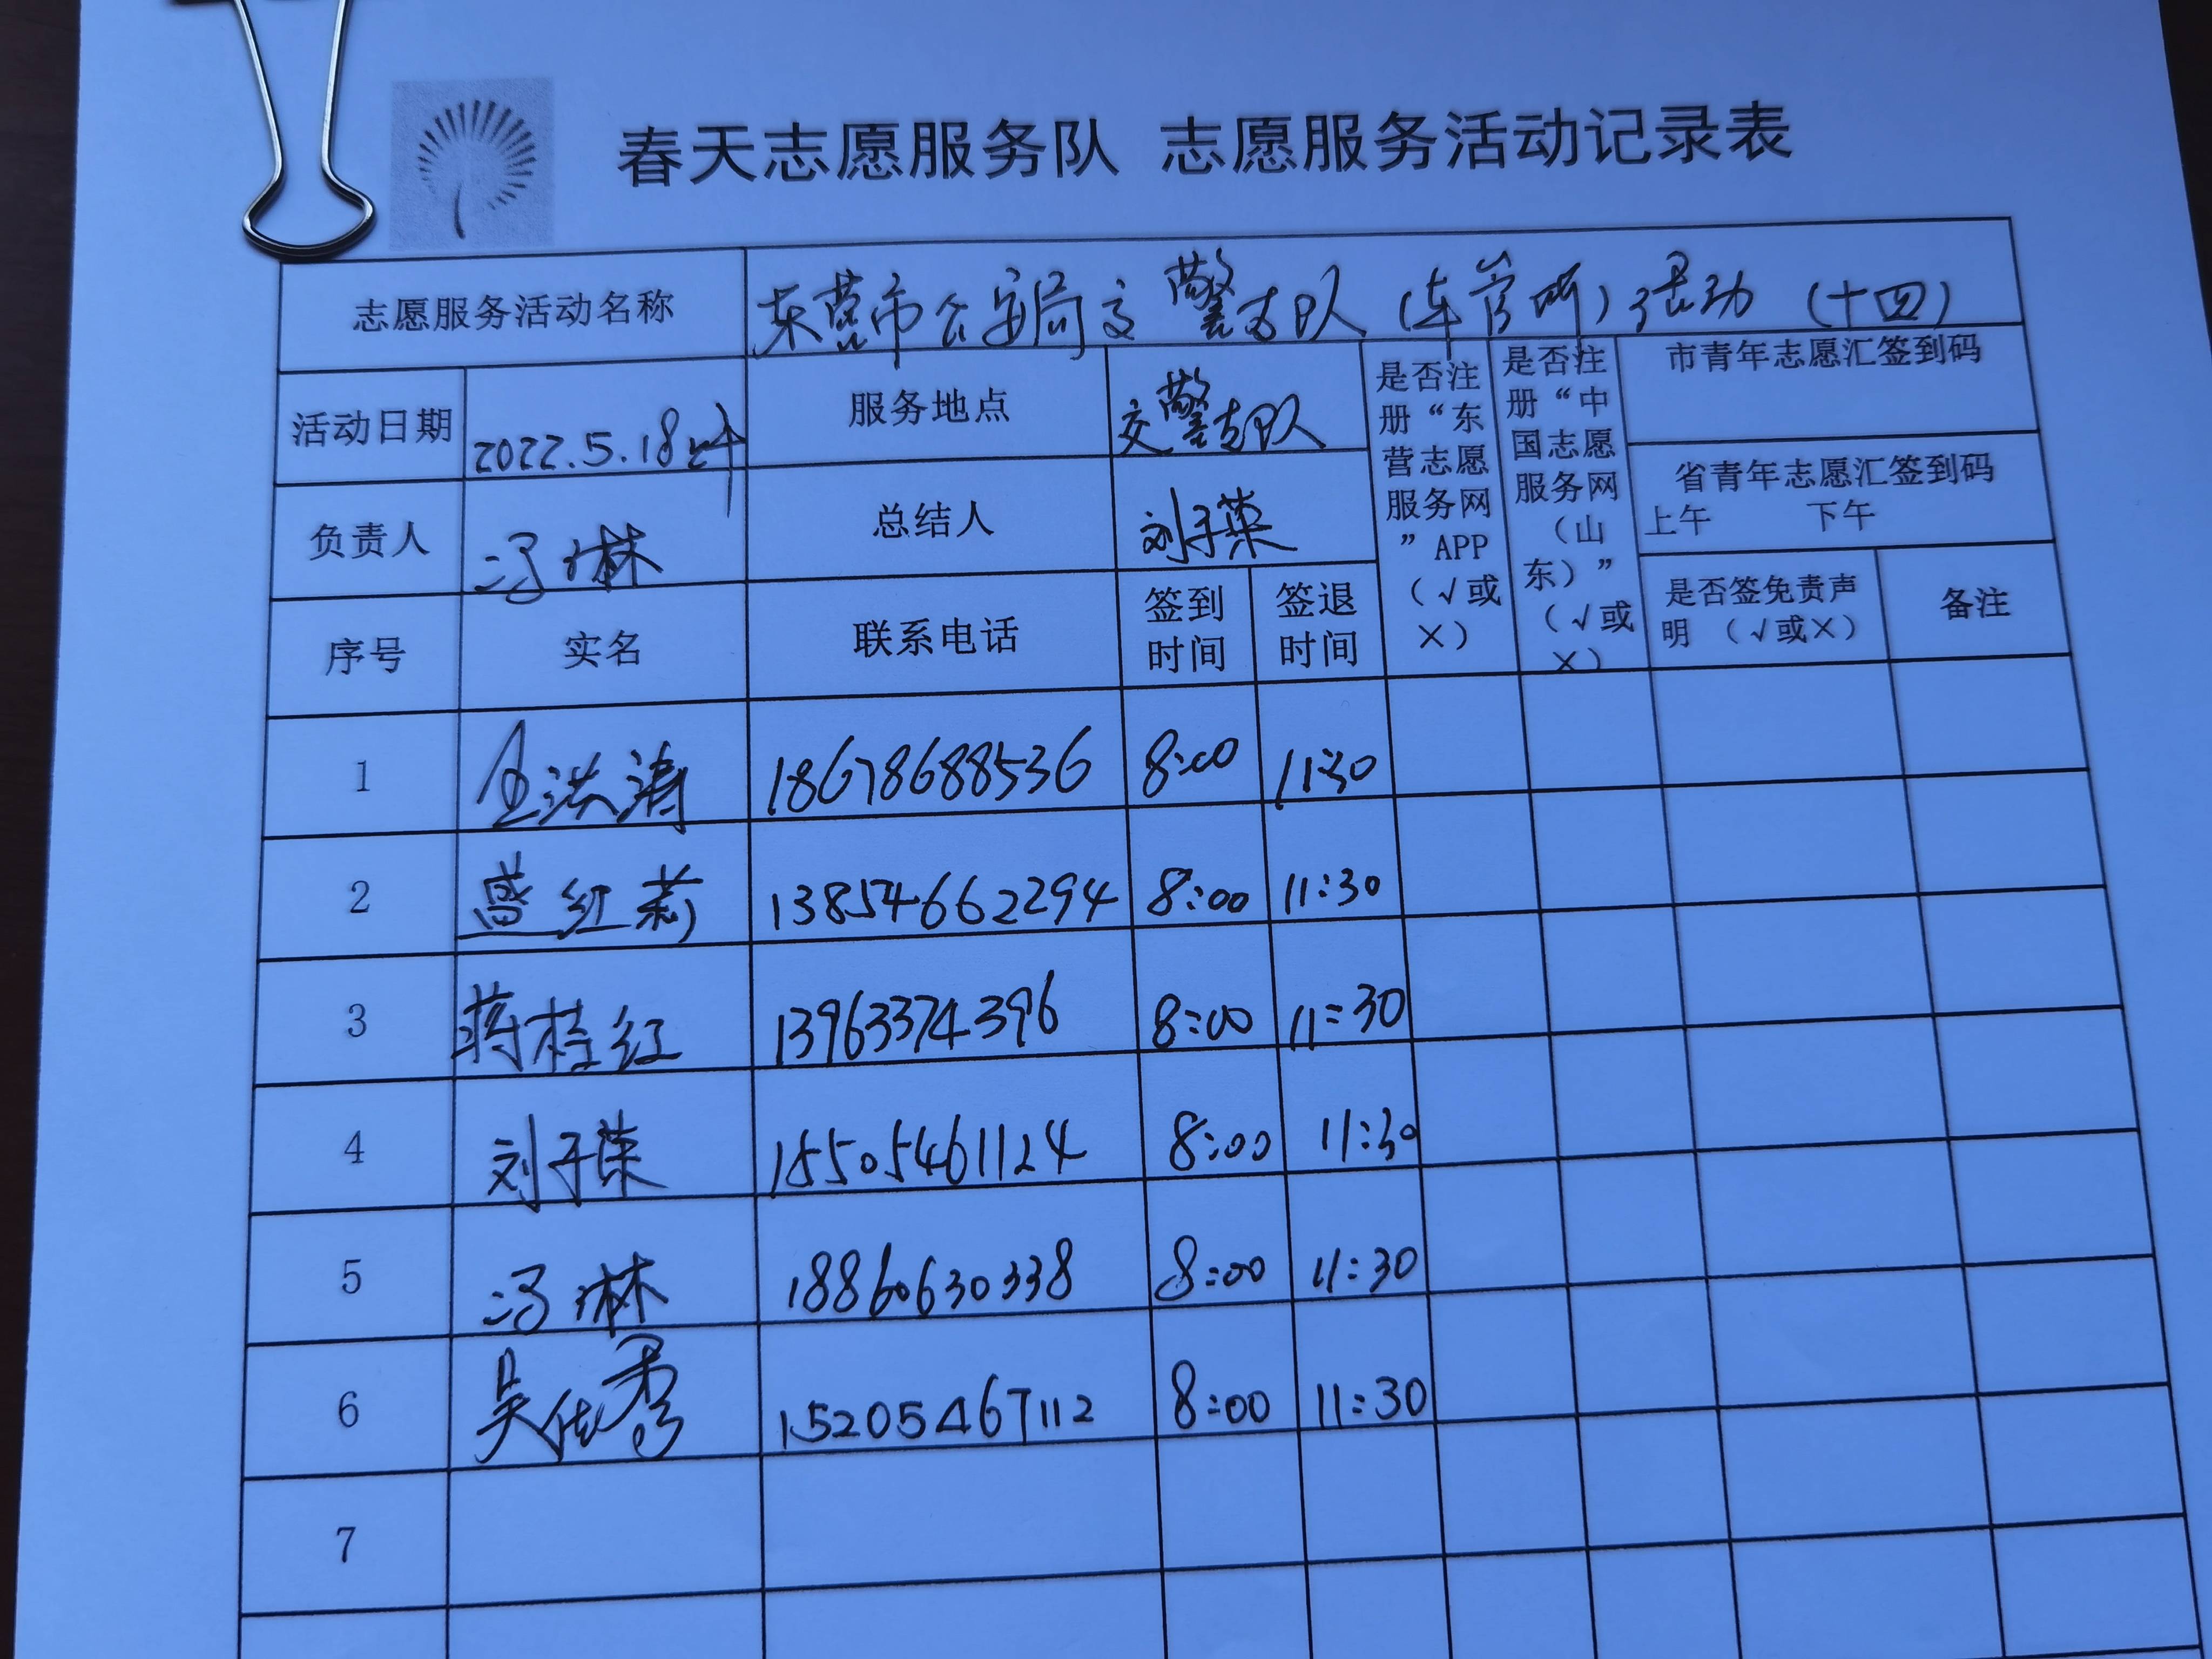 春天志愿服务队 志愿服务活动记录表
志愿服务活动名称 东营市公安局交警支队(车管所)活动(十四)
活动日期 2022.5.18上午 服务地点 交警支队
是否注册“东营志愿服务网”APP(√或×)
是否注册“中国志愿服务网(山东)”(√或×)
市青年志愿汇签到码
省青年志愿汇签到码
上午 下午
负责人 冯琳 总结人 刘子荣
序号 实名 联系电话 签到时间 签退时间 是否签免责声明 (√或×) 备注
1 洪涛 18678688536 8:00 11:30
2 盛红莉 13854662294 8:00 11:30
3 蒋桂红 13963374396 8:00 11:30
4 刘子荣 15505461124 8:00 11:30
5 冯琳 18860630338 8:00 11:30
6 吴秀 15205467112 8:00 11:30
7